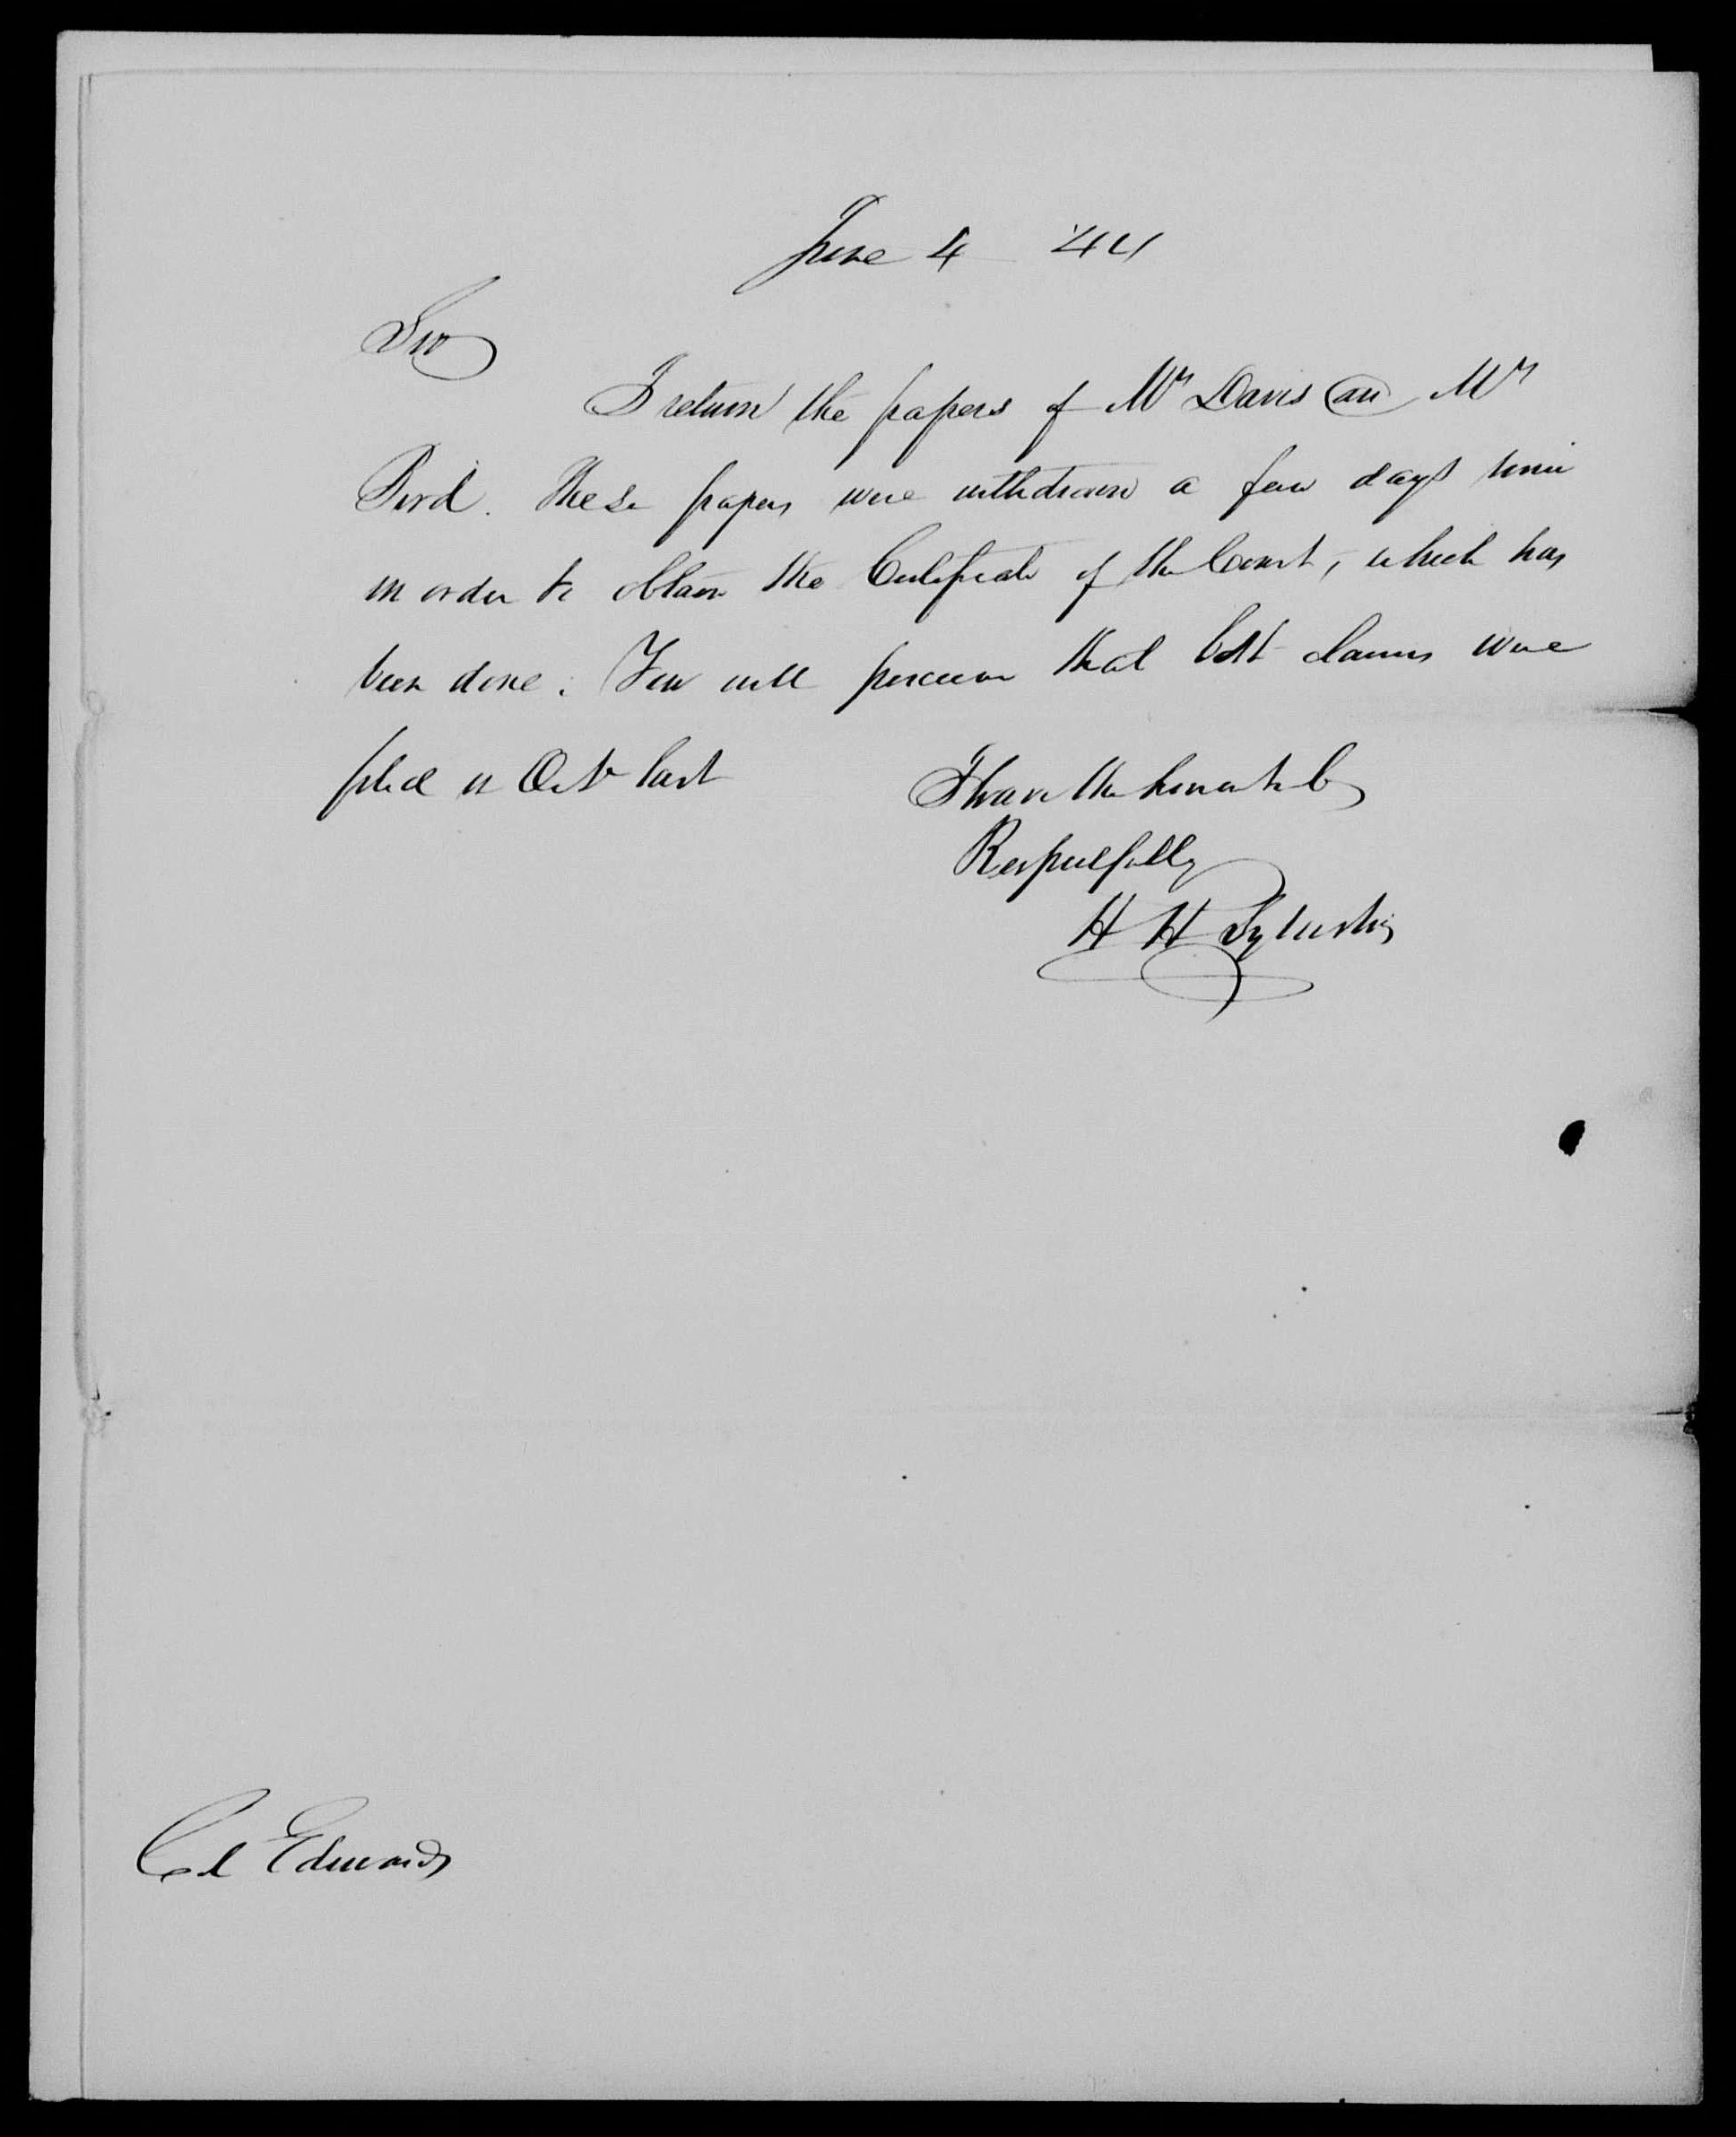 June 4 '44
Sir
I return the papers of Mrs Davis and Mrs
Bird. These papers were withdrawn a few days since
in order to obtain the Certificate of the Court, which has
been done. You will perceive that both claims were
filed in Octr last
I have the honor to be
Respectfully
H H Sylvester
Col Edwards